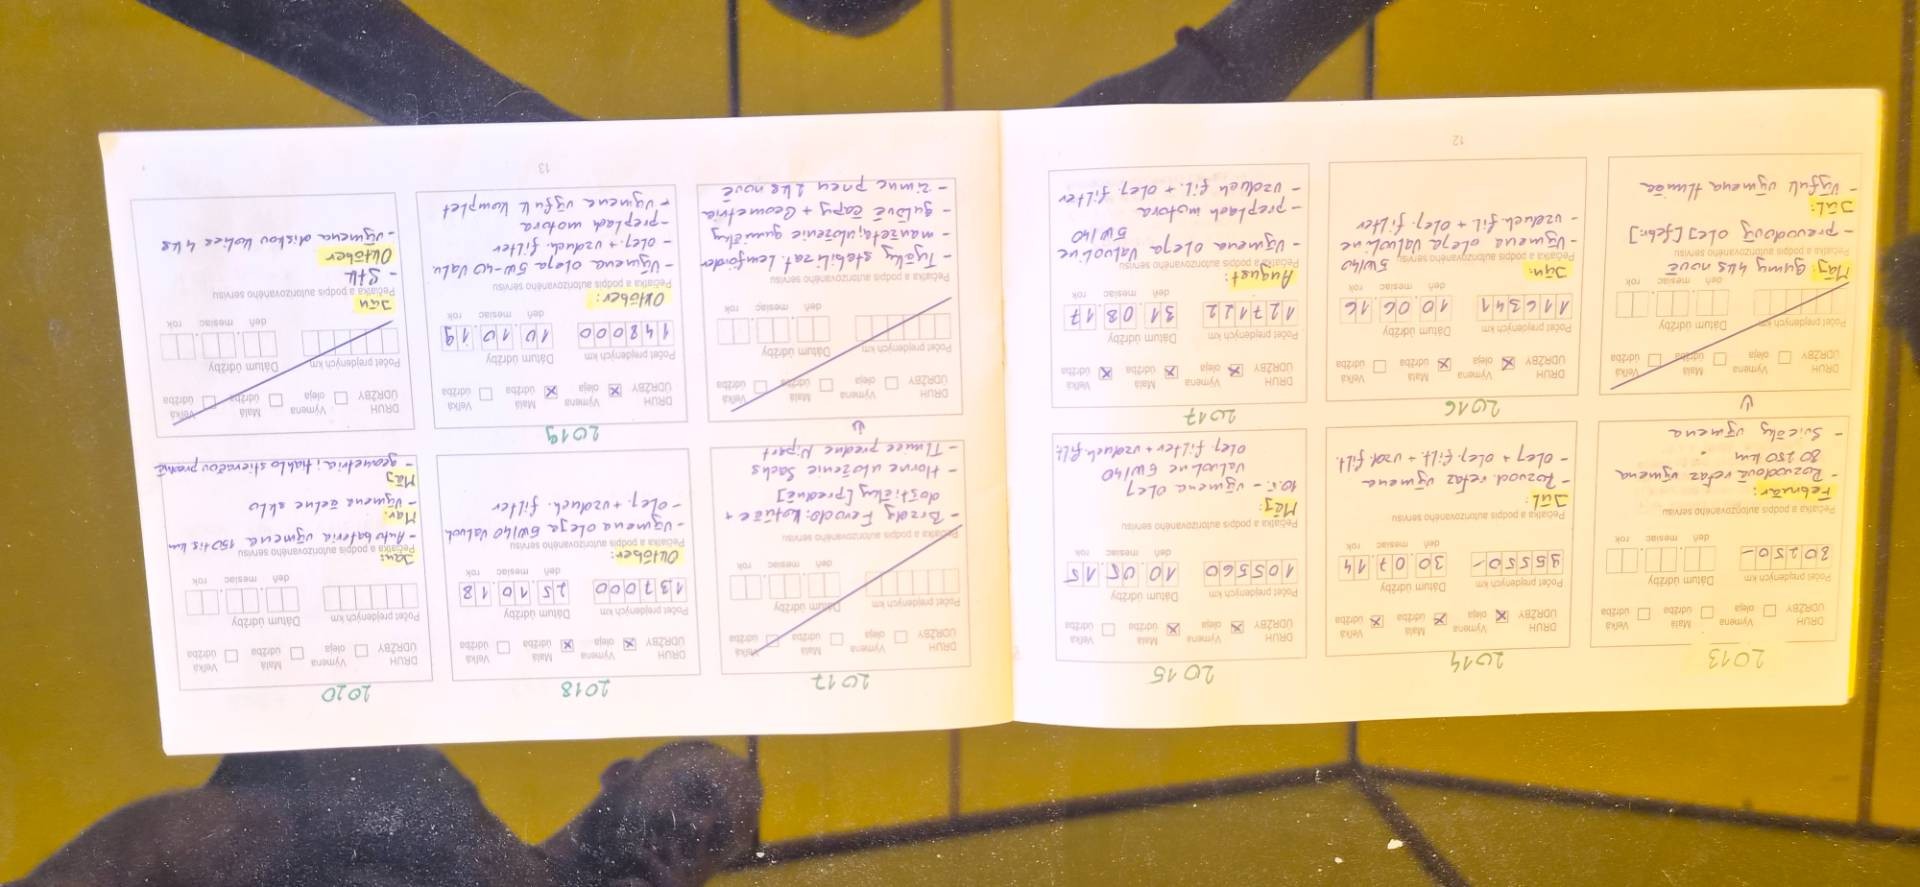 2013
DRUH ÚDRŽBY
Výmena oleja
Malá údržba
Veľká údržba
Počet prejdených km
Dátum údržby
80250-
deň mesiac rok
Pečiatka a podpis autorizovaného servisu
Február:
- Rozvodová reťaz výmena
80 250 km
- Sviečky výmena
2014
DRUH ÚDRŽBY
Výmena oleja
Malá údržba
Veľká údržba
Počet prejdených km
Dátum údržby
95550-
30.07.14
deň mesiac rok
Pečiatka a podpis autorizovaného servisu
Júl:
- Rozvod. reťaz výmena
- olej + olej. filt. + vzd. filt.
2015
DRUH ÚDRŽBY
Výmena oleja
Malá údržba
Veľká údržba
Počet prejdených km
Dátum údržby
105560
10.05.15
deň mesiac rok
Pečiatka a podpis autorizovaného servisu
Máj:
- výmena olej
Valvoline 5W/40
olej. filter + vzduch. filt.
DRUH ÚDRŽBY
Výmena oleja
Malá údržba
Veľká údržba
Počet prejdených km
Dátum údržby
deň mesiac rok
Máj: gumy 4ks nové
Pečiatka a podpis autorizovaného servisu
- prevodový olej [febr.]
Júl:
- Výfuk výmena tlmiča
2016
DRUH ÚDRŽBY
Výmena oleja
Malá údržba
Veľká údržba
Počet prejdených km
Dátum údržby
116341
10.06.16
deň mesiac rok
Jún: 5W/40
Pečiatka a podpis autorizovaného servisu
- Výmena oleja Valvoline
- vzduch. fil. + olej. filter
2017
DRUH ÚDRŽBY
Výmena oleja
Malá údržba
Veľká údržba
Počet prejdených km
Dátum údržby
127122
31.08.17
deň mesiac rok
August:
Pečiatka a podpis autorizovaného servisu
- Výmena oleja Valvoline
5W/40
- preplach motora
- vzduch fil. + olej. filter
12
2017
DRUH ÚDRŽBY
Výmena oleja
Malá údržba
Veľká údržba
Počet prejdených km
Dátum údržby
deň mesiac rok
Pečiatka a podpis autorizovaného servisu
- Brzdy Ferodo: kotúče +
doštičky [predné]
- Horné uloženie Sachs
- Tlmiče predné
2018
DRUH ÚDRŽBY
Výmena oleja
Malá údržba
Veľká údržba
Počet prejdených km
Dátum údržby
137000
25.10.18
deň mesiac rok
Október:
Pečiatka a podpis autorizovaného servisu
- výmena oleja 5W/40 Valvol
- olej. + vzduch. filter
2020
DRUH ÚDRŽBY
Výmena oleja
Malá údržba
Veľká údržba
Počet prejdených km
Dátum údržby
deň mesiac rok
Jan:
Pečiatka a podpis autorizovaného servisu
- Autobatéria výmena 150 tis. km
Mar.
- Výmena čelné sklo
Máj
- geometria, stieračov predné
DRUH ÚDRŽBY
Výmena oleja
Malá údržba
Veľká údržba
Počet prejdených km
Dátum údržby
deň mesiac rok
Pečiatka a podpis autorizovaného servisu
- Tyčky stabilizát. Lemförder
- manžeta, uloženie gumičky
- guľové čapy + Geometria
- zimné pneu 2ks nové
2019
DRUH ÚDRŽBY
Výmena oleja
Malá údržba
Veľká údržba
Počet prejdených km
Dátum údržby
148000
10.10.19
deň mesiac rok
Október:
Pečiatka a podpis autorizovaného servisu
- Výmena oleja 5W-40 Valv
- olej. + vzduch. filter
- preplach motora
- výmena výfuk komplet
DRUH ÚDRŽBY
Výmena oleja
Malá údržba
Veľká údržba
Počet prejdených km
Dátum údržby
deň mesiac rok
Jún
Pečiatka a podpis autorizovaného servisu
- STK
Október
- výmena diskov kolies 4ks
13